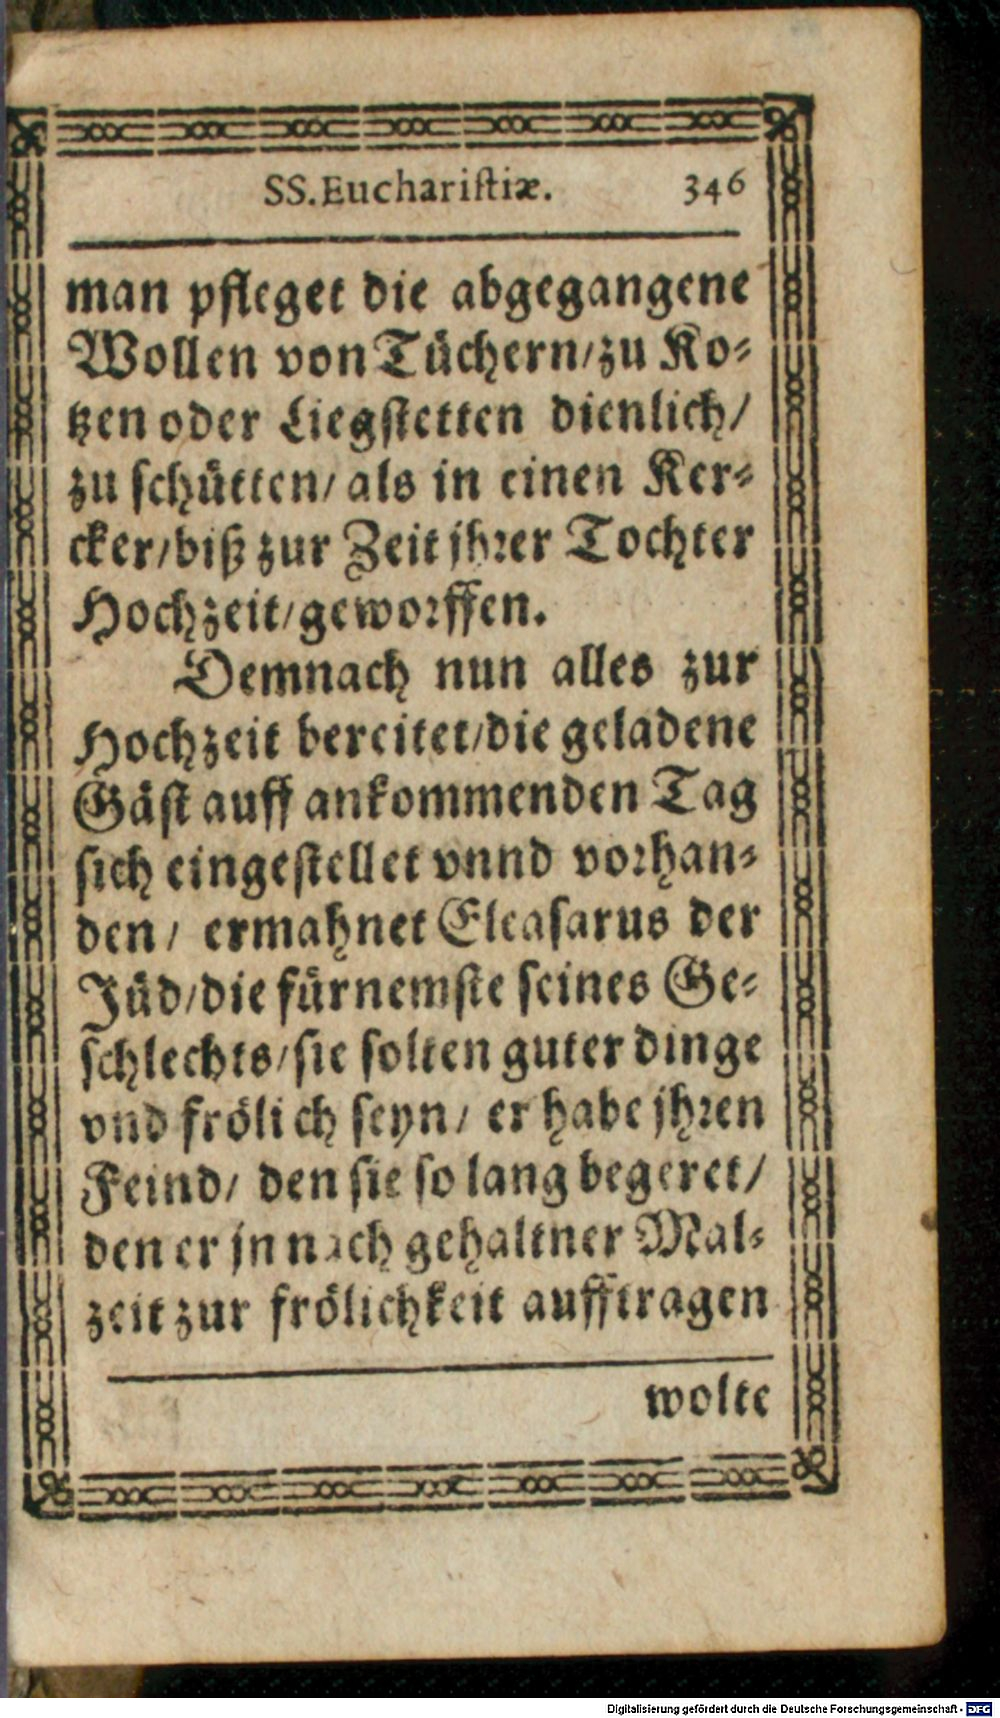 SS. Euchariſtiæ. 346
man pfleget die abgegangene
Wollen von Tüchern/zu Ko⸗
tzen oder Liegſtetten dienlich/
zu ſchütten/ als in einen Ker⸗
cker/biß zur Zeit jhrer Tochter
Hochzeit/geworffen.
Demnach nun alles zur
Hochzeit bereitet/die geladene
Gäſt auff ankommenden Tag
ſich eingeſtellet vnnd vorhan⸗
den/ ermahnet Eleaſarus der
Jüd/die fürnemſte ſeines Ge⸗
ſchlechts/ſie ſolten guter dinge
vnd frölich ſeyn/ er habe jhren
Feind/ den ſie ſo lang begeret/
den er jn nach gehaltner Mal⸗
zeit zur frölichkeit aufftragen
wolte
Digitalisierung gefördert durch die Deutsche Forschungsgemeinschaft - DFG